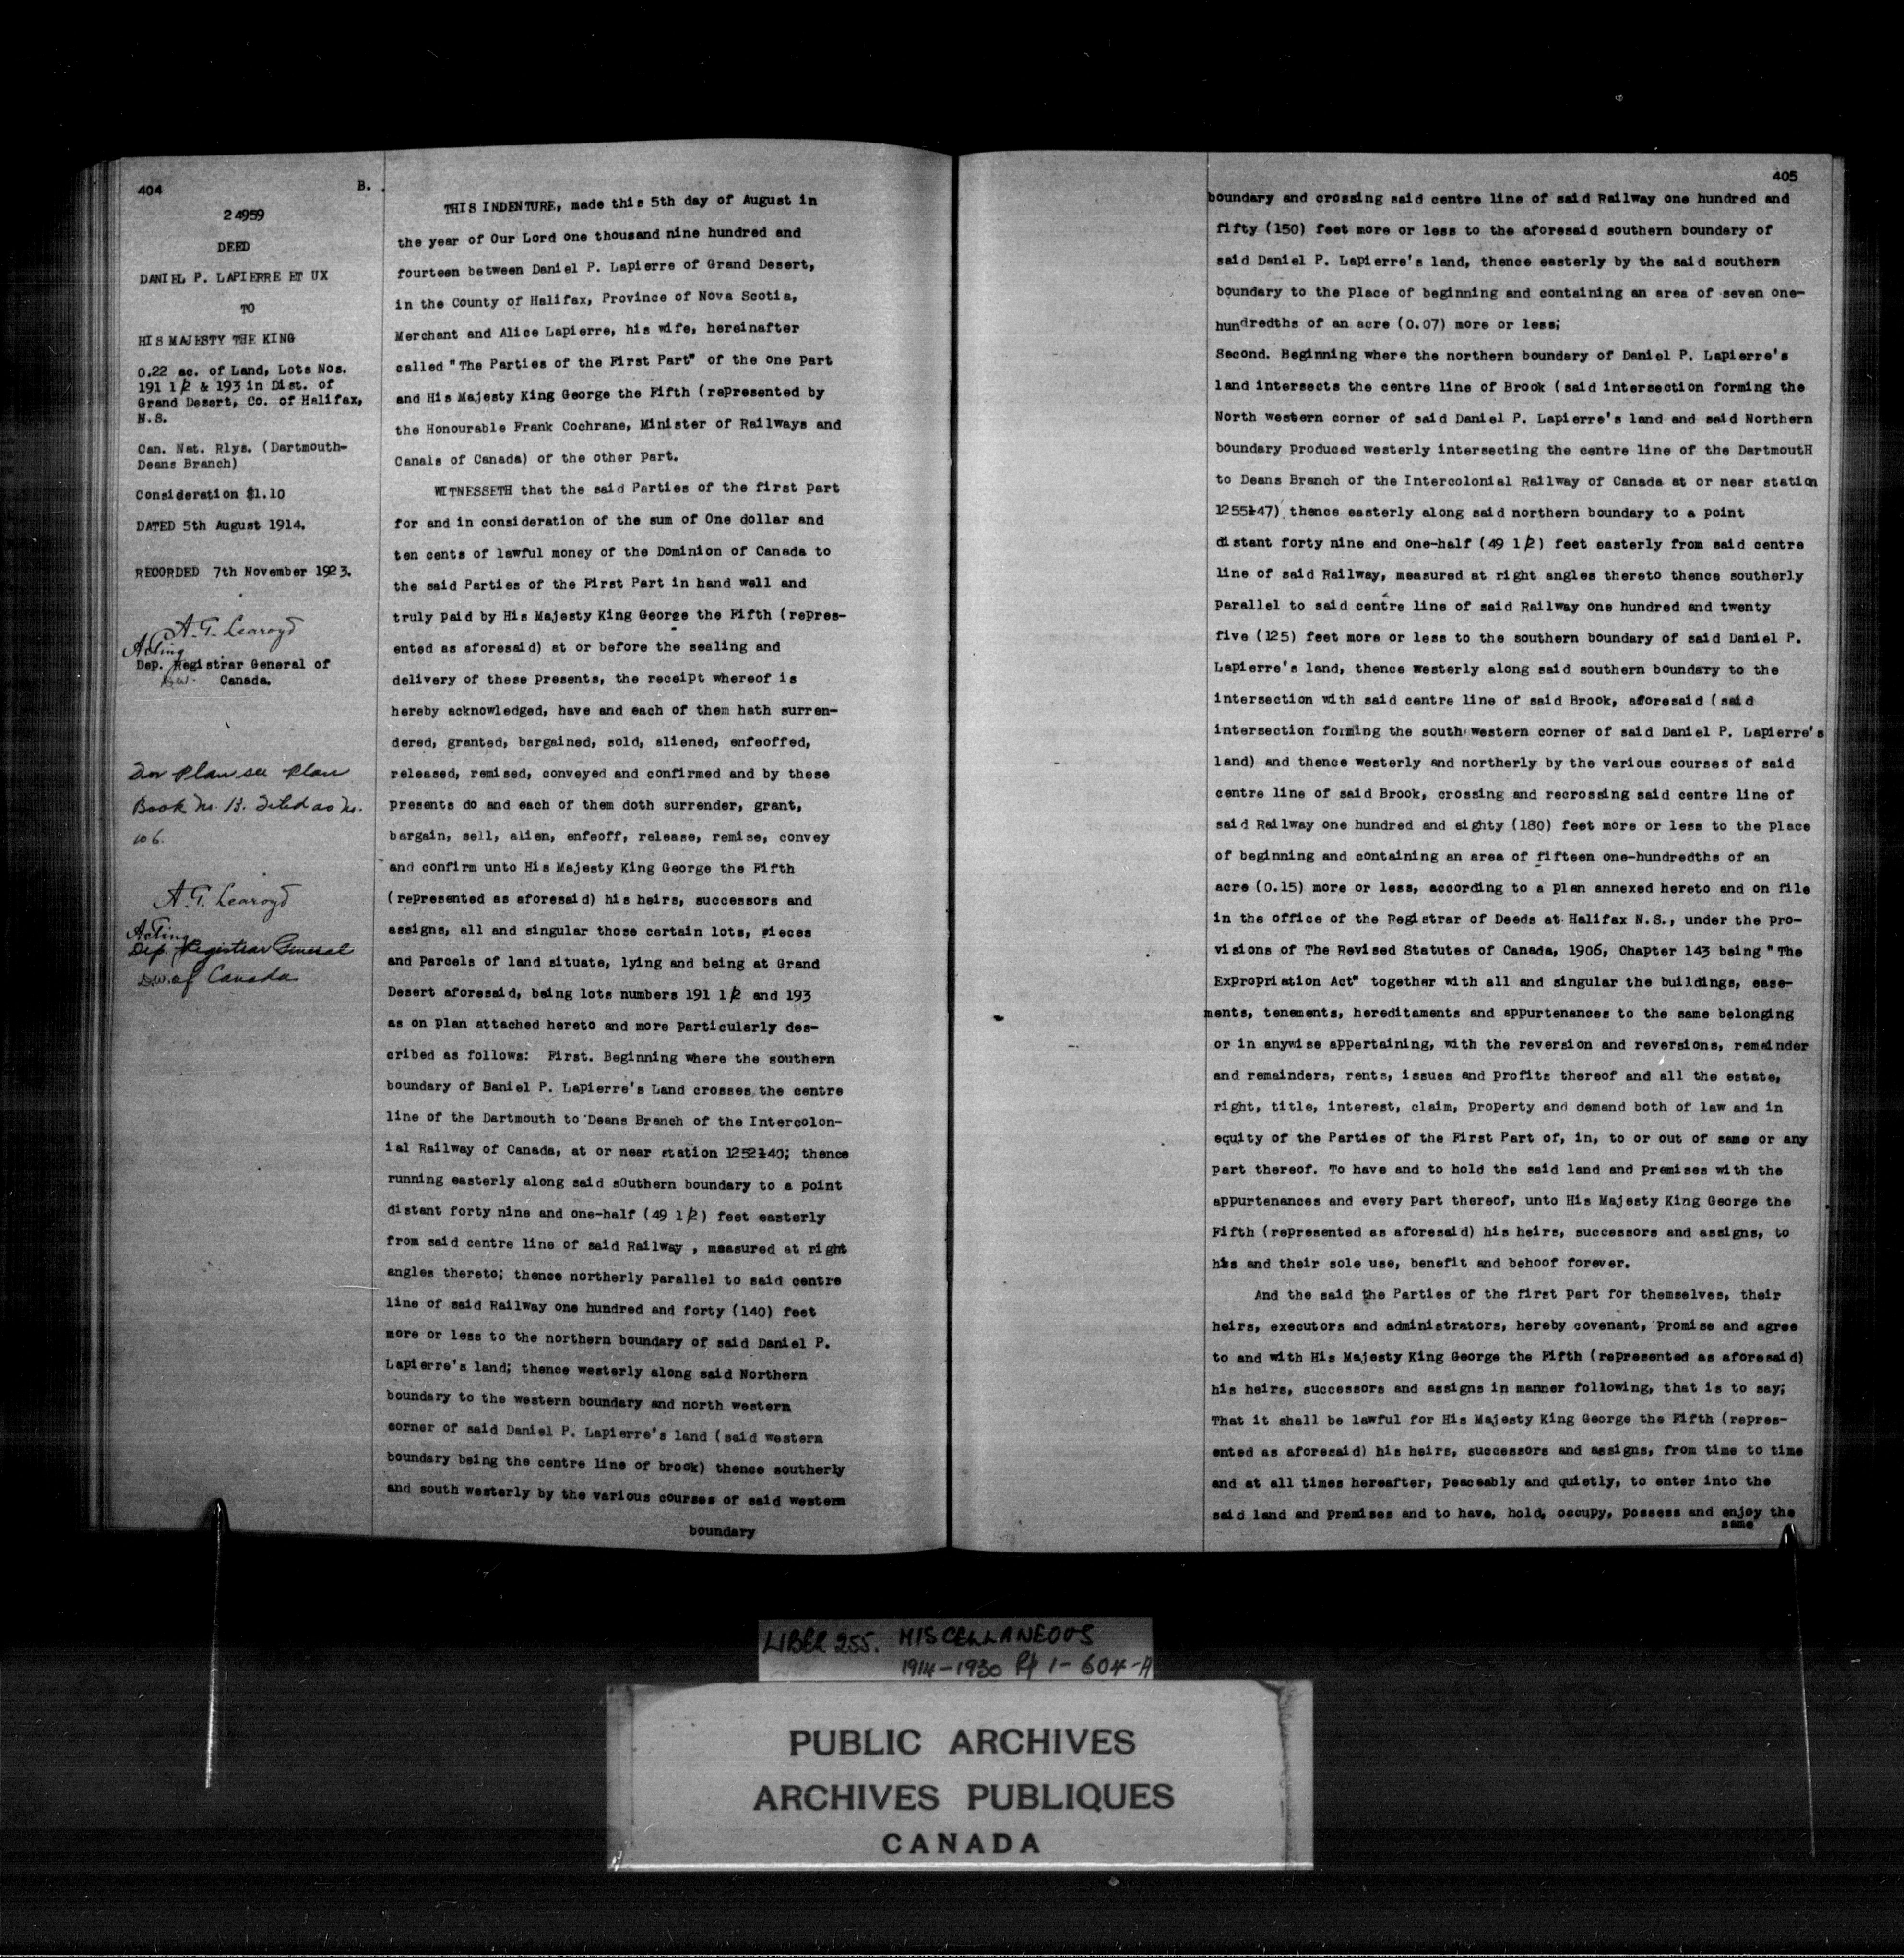 404
B.
24959
DEED
DANIEL P. LAPIERRE ET UX
TO
HIS MAJESTY THE KING
0.22 ac. of Land, Lots Nos.
191 1/2 & 193 in Dist. of
Grand Desert, Co. of Halifax,
N.S.
Can. Nat. Rlys. (Dartmouth-
Deans Branch)
Consideration $1.10
DATED 5th August 1914.
RECORDED 7th November 1923.
A.T. Learoyd
Acting
Dep. Registrar General of
Canada.
For Plan see Plan
Book No. 13. Filed as No.
106.
A.T. Learoyd
Acting
Dep. Registrar General
of Canada
THIS INDENTURE, made this 5th day of August in
the year of Our Lord one thousand nine hundred and
fourteen between Daniel P. Lapierre of Grand Desert,
in the County of Halifax, Province of Nova Scotia,
Merchant and Alice Lapierre, his wife, hereinafter
called "The Parties of the First Part" of the one part
and His Majesty King George the Fifth (represented by
the Honourable Frank Cochrane, Minister of Railways and
Canals of Canada) of the other part.
WITNESSETH that the said Parties of the first part
for and in consideration of the sum of One dollar and
ten cents of lawful money of the Dominion of Canada to
the said Parties of the First Part in hand well and
truly paid by His Majesty King George the Fifth (repres-
ented as aforesaid) at or before the sealing and
delivery of these presents, the receipt whereof is
hereby acknowledged, have and each of them hath surren-
dered, granted, bargained, sold, aliened, enfeoffed,
released, remised, conveyed and confirmed and by these
presents do and each of them doth surrender, grant,
bargain, sell, alien, enfeoff, release, remise, convey
and confirm unto His Majesty King George the Fifth
(represented as aforesaid) his heirs, successors and
assigns, all and singular those certain lots, pieces
and parcels of land situate, lying and being at Grand
Desert aforesaid, being lots numbers 191 1/2 and 193
as on plan attached hereto and more particularly des-
cribed as follows: First. Beginning where the southern
boundary of Baniel P. Lapierre's Land crosses the centre
line of the Dartmouth to Deans Branch of the Intercolon-
ial Railway of Canada, at or near station 1252+40; thence
running easterly along said sOuthern boundary to a point
distant forty nine and one-half (49 1/2) feet easterly
from said centre line of said Railway , measured at right
angles thereto; thence northerly parallel to said centre
line of said Railway one hundred and forty (140) feet
more or less to the northern boundary of said Daniel P.
Lapierre's land; thence westerly along said Northern
boundary to the western boundary and north western
corner of said Daniel P. Lapierre's land (said western
boundary being the centre line of brook) thence southerly
and south westerly by the various courses of said western
boundary
405
boundary and crossing said centre line of said Railway one hundred and
fifty (150) feet more or less to the aforesaid southern boundary of
said Daniel P. Lapierre's land, thence easterly by the said southern
boundary to the place of beginning and containing an area of seven one-
hundredths of an acre (0.07) more or less;
Second. Beginning where the northern boundary of Daniel P. Lapierre's
land intersects the centre line of Brook (said intersection forming the
North western corner of said Daniel P. Lapierre's land and said Northern
boundary produced westerly intersecting the centre line of the DartmoutH
to Deans Branch of the Intercolonial Railway of Canada at or near station
1255+47) thence easterly along said northern boundary to a point
distant forty nine and one-half (49 1/2) feet easterly from said centre
line of said Railway, measured at right angles thereto thence southerly
parallel to said centre line of said Railway one hundred and twenty
five (125) feet more or less to the southern boundary of said Daniel P.
Lapierre's land, thence westerly along said southern boundary to the
intersection with said centre line of said Brook, aforesaid (said
intersection forming the south western corner of said Daniel P. Lapierre's
land) and thence westerly and northerly by the various courses of said
centre line of said Brook, crossing and recrossing said centre line of
said Railway one hundred and eighty (180) feet more or less to the place
of beginning and containing an area of fifteen one-hundredths of an
acre (0.15) more or less, according to a plan annexed hereto and on file
in the office of the Registrar of Deeds at Halifax N.S., under the pro-
visions of The Revised Statutes of Canada, 1906, Chapter 143 being "The
Expropriation Act" together with all and singular the buildings, ease-
ments, tenements, hereditaments and appurtenances to the same belonging
or in anywise appertaining, with the reversion and reversions, remainder
and remainders, rents, issues and profits thereof and all the estate,
right, title, interest, claim, property and demand both of law and in
equity of the Parties of the First Part of, in, to or out of same or any
part thereof. To have and to hold the said land and premises with the
appurtenances and every part thereof, unto His Majesty King George the
Fifth (represented as aforesaid) his heirs, successors and assigns, to
his and their sole use, benefit and behoof forever.
And the said the Parties of the first part for themselves, their
heirs, executors and administrators, hereby covenant, promise and agree
to and with His Majesty King George the Fifth (represented as aforesaid)
his heirs, successors and assigns in manner following, that is to say;
That it shall be lawful for His Majesty King George the Fifth (repres-
ented as aforesaid) his heirs, successors and assigns, from time to time
and at all times hereafter, peaceably and quietly, to enter into the
said land and premises and to have, hold, occupy, possess and enjoy the
same
LIBER 255. MISCELLANEOUS
1914-1930 Pp 1-604-A
PUBLIC ARCHIVES
ARCHIVES PUBLIQUES
CANADA